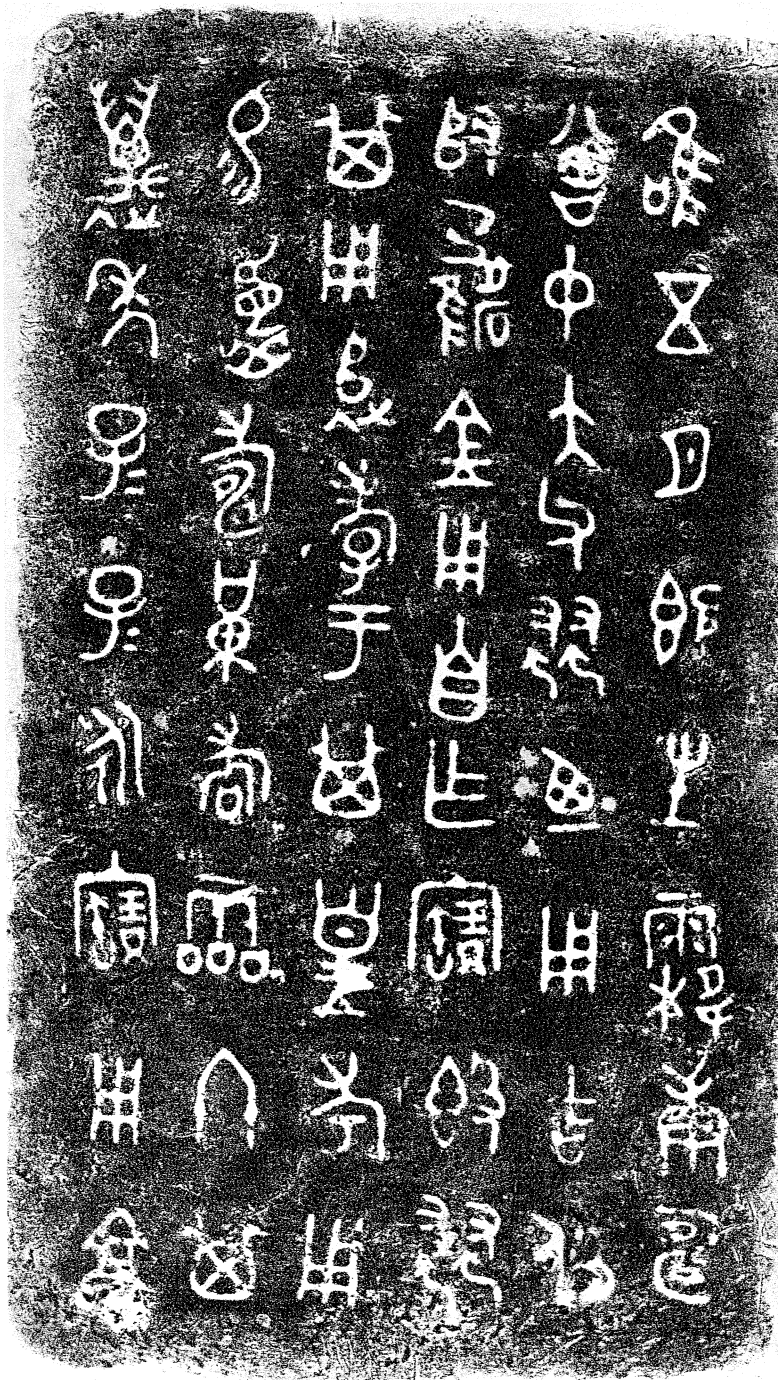 隹五月既生霸庚申
曾中大父廼用吉攸
金用自乍寶𣪘
其用追孝于其皇考用
易眉壽黃耇霝冬其
邁年子=孫=永寶用亯